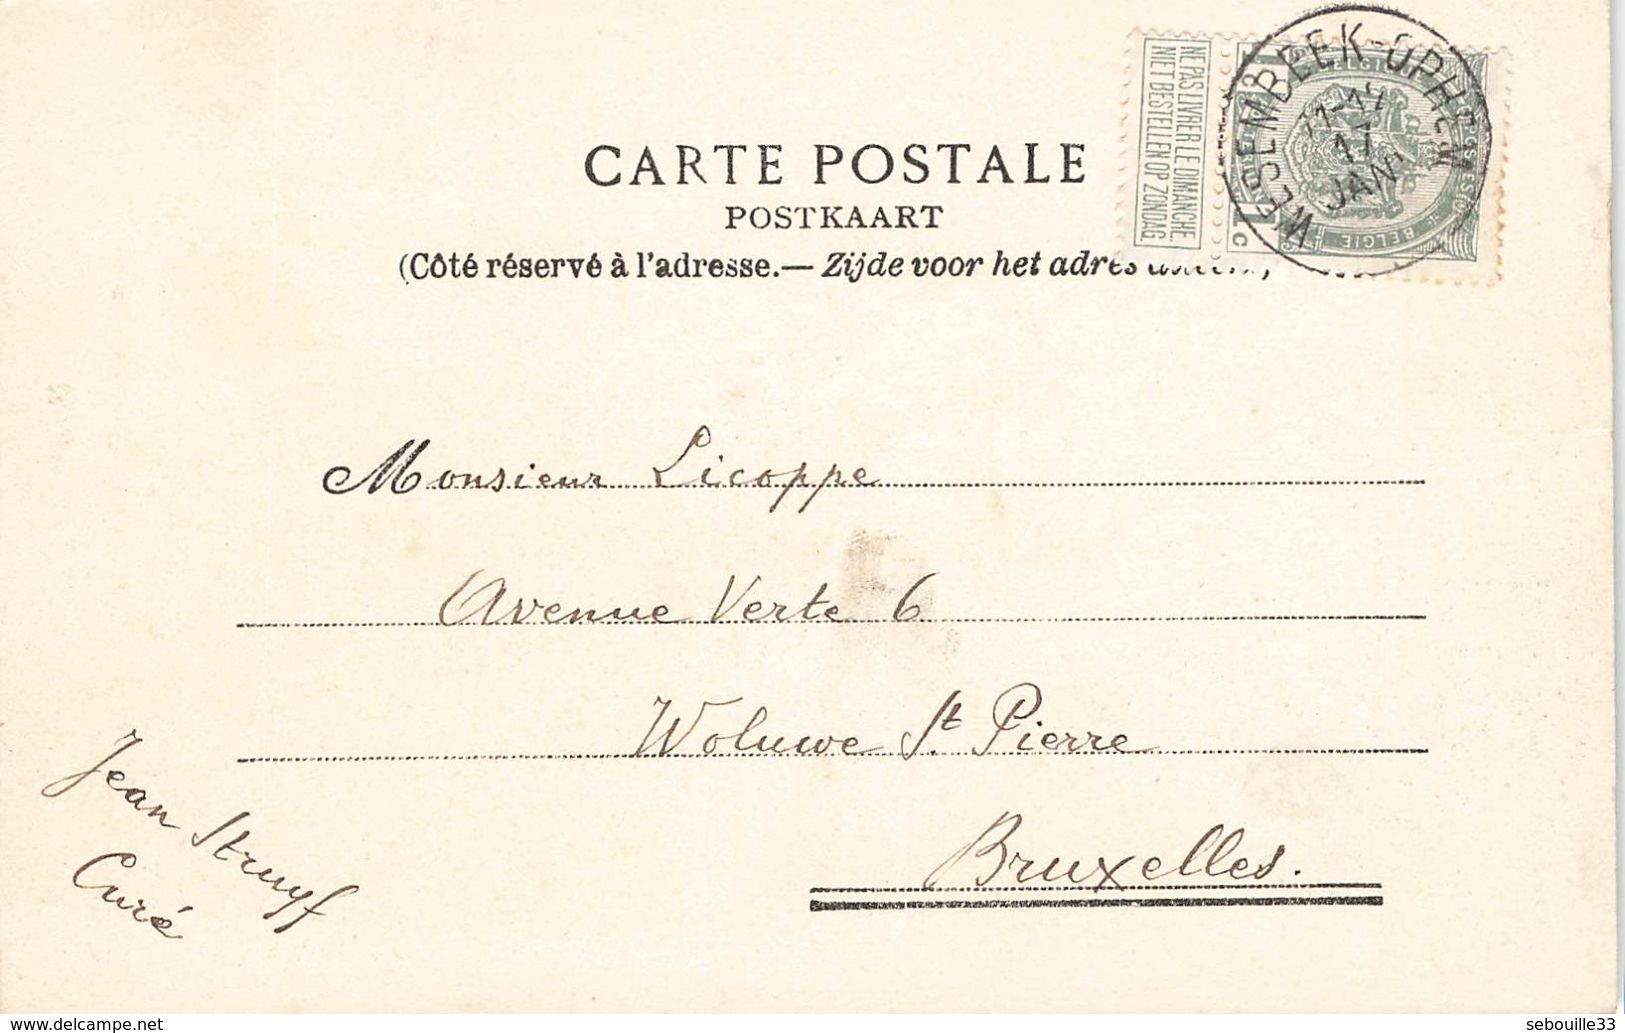 CARTE POSTALE
POSTKAART
(Côté réservé à l'adresse.— Zijde voor het adres
NE PAS LIVRER LE DIMANCHE
NIET BESTELLEN OP ZONDAG
WESEMBEEK-OPHEM
17
JAN
BELGIE
Monsieur Licoppe
Avenue Verte 6
Woluwe St. Pierre
Bruxelles.
Jean Struyf
Curé
www.delcampe.net
sebouille33